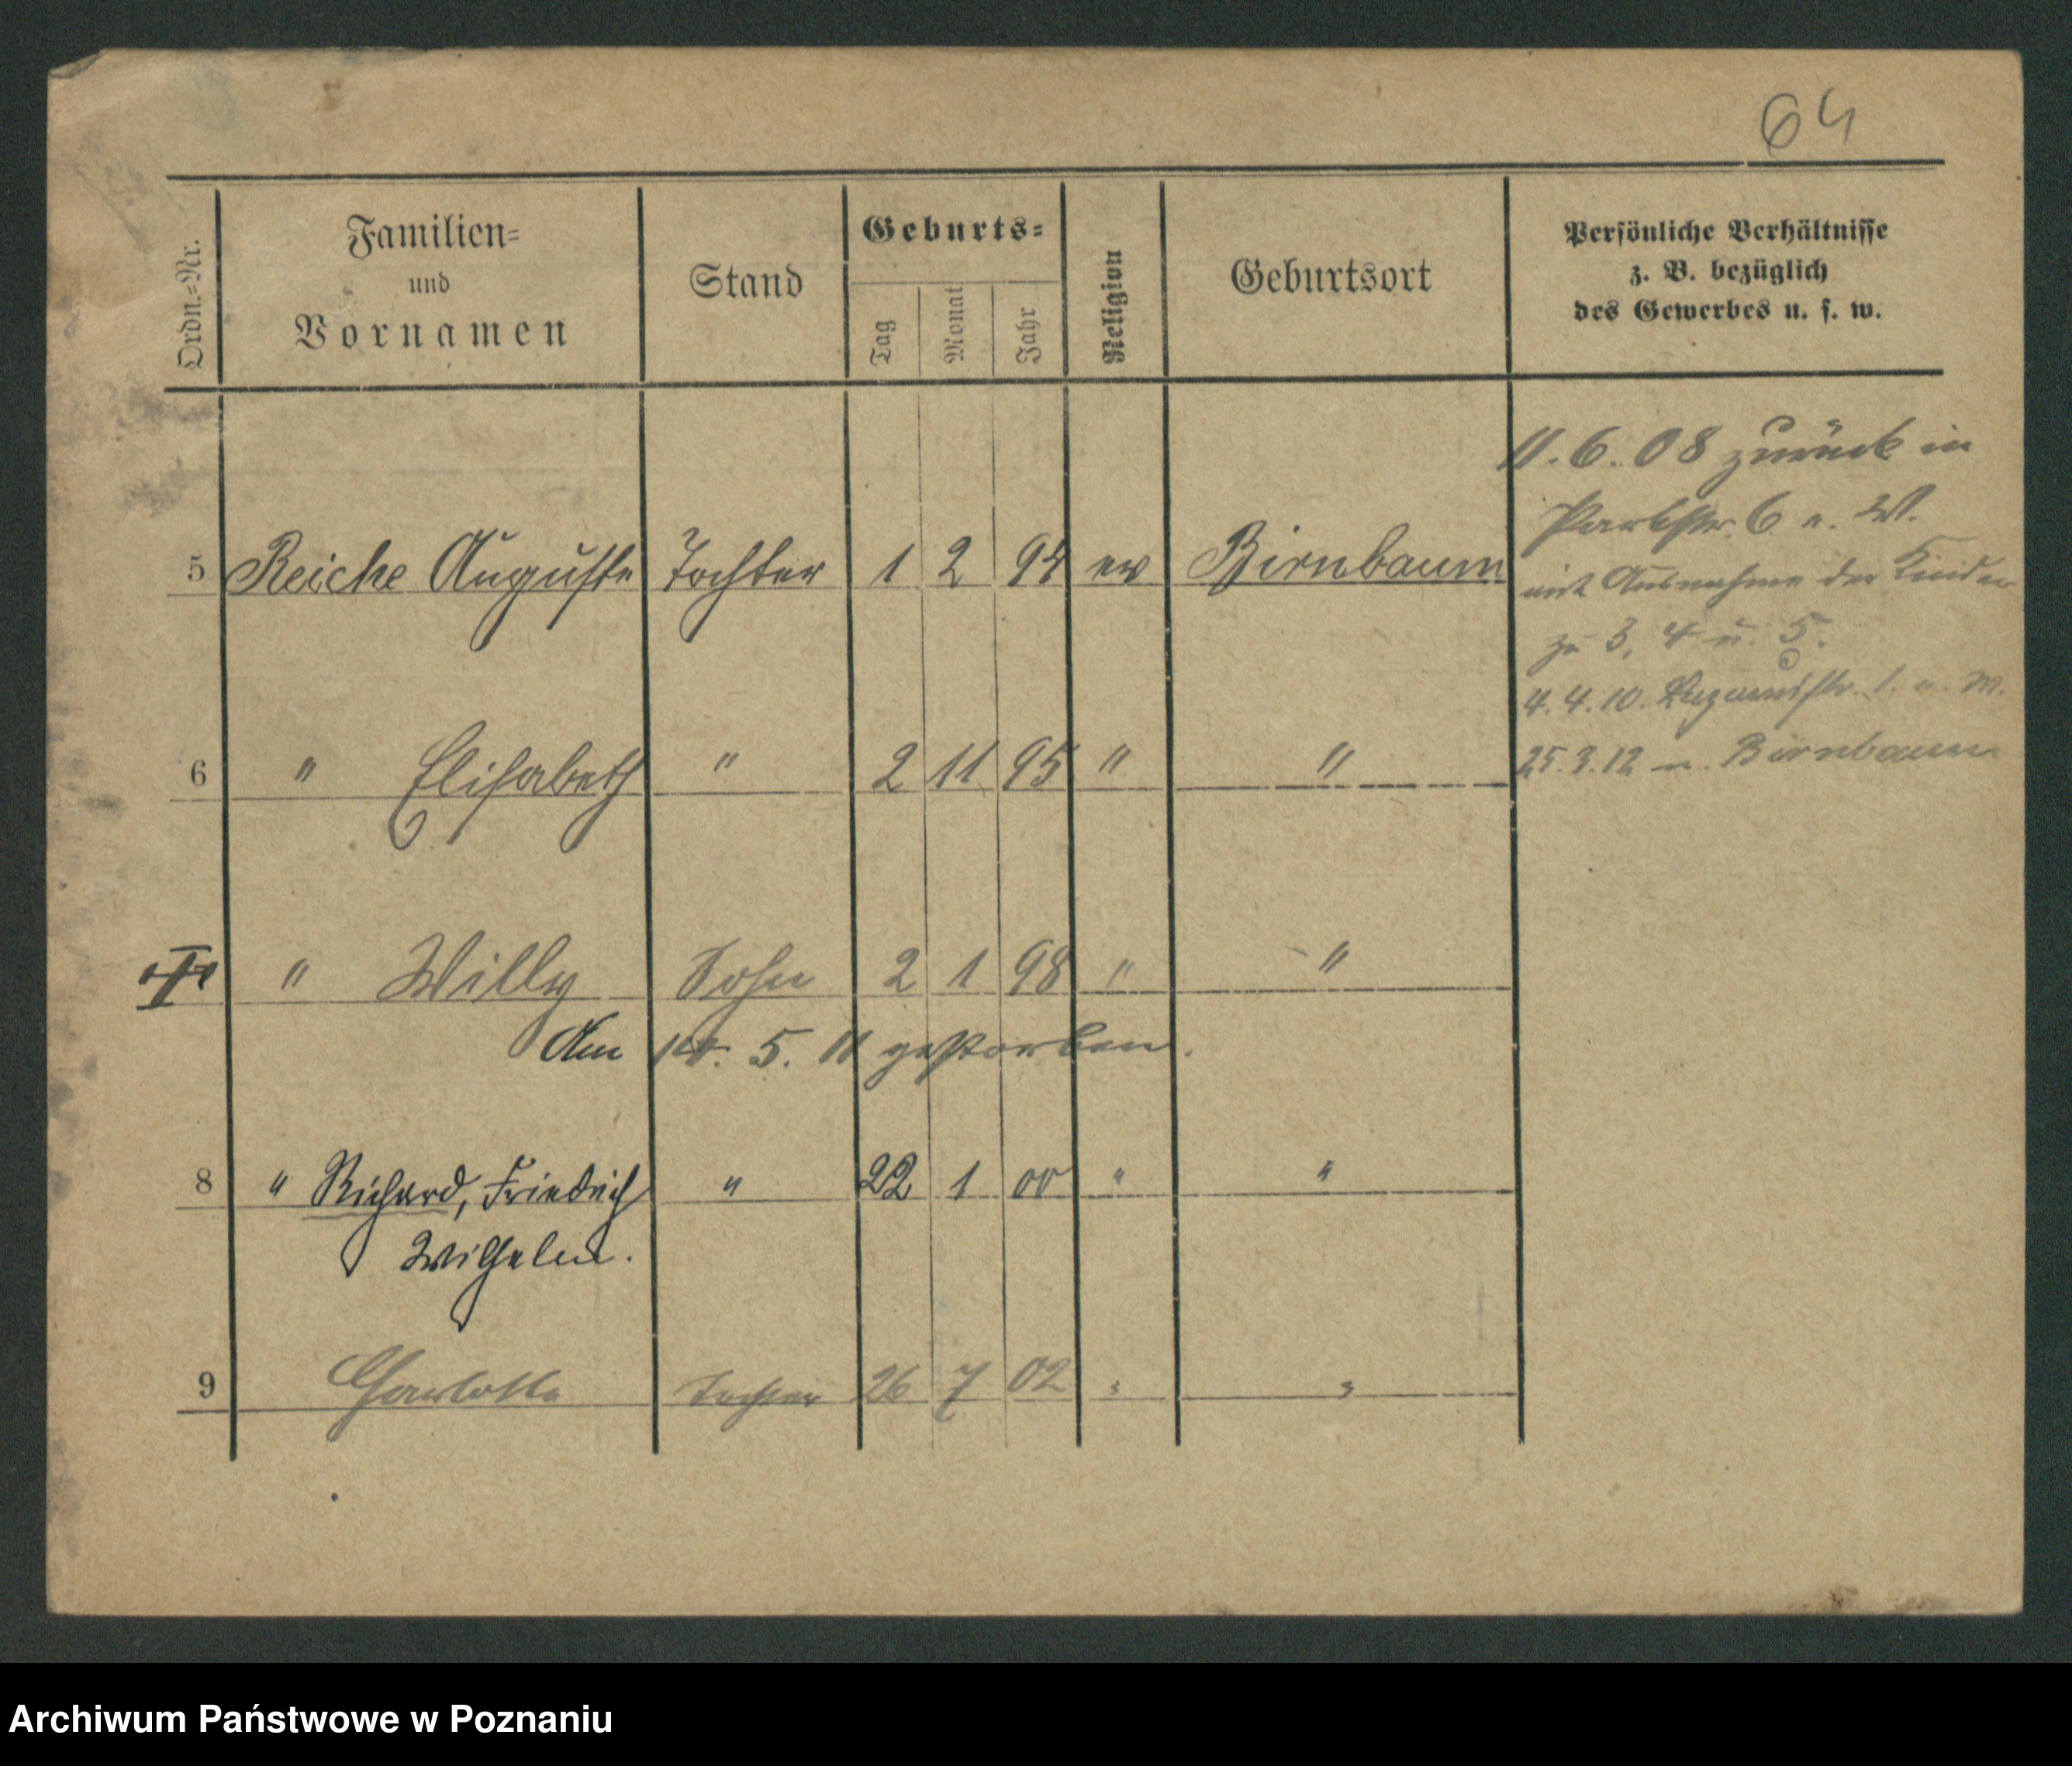 64
Ordn.=Nr.
Familien=
und
Vornamen
Stand
Geburts=
Tag
Monat
Jahr
Religion
Geburtsort
Persönliche Verhältnisse
z. B. bezüglich
des Gewerbes u. s. w.
5 Reiche Auguste Tochter 1 2 94 ev Birnbaum
6 " Elisabeth " 2 11 95 " "
" Willy Sohn 2 1 98 " "
Am 14. 5. 11 gestorben.
8 " Richard, Friedrich " 22 1 00 " "
Wilhelm.
9 Charlotte Tochter 26 7 02 " "
11. 6. 08 zurück in
Parkstr. 6 u. W.
mit Ausnahme der Kinder
zu 3, 4 u. 5.
4. 4. 10. 1. u. W.
25. 3. 12 n. Birnbaum
Archiwum Państwowe w Poznaniu